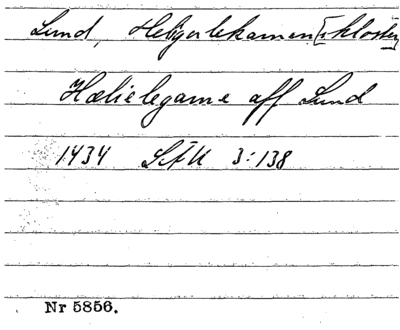 Lund, Helgerlekamen[skloster]
Hælielegame aff Lund
1434 SÅU 3:138
Nr 5856.